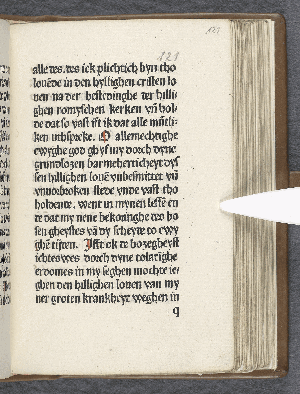 121
alle des des ick plichtich byn tho
louēde in den hyllighen cristen lo
uen na der bestedinghe der hilli
ghen romyschen kerken vn̄ hol
de dat so vast ist ik dat alle
ken uthspreke. O allemechtighe
ewyghe god ghyf my dorch dyne
grundlozen barmeherticheyt dys
sen hillighen louē vnbesmittet vn̄
vnuorbroken stede vnde vast tho
holdende. went in mynen lesten en
de dat my nene bekoringhe des bo
sen gheystes vn̄ dy scheyde to ewy
ghē tiden. Ifft ok de bozegheyst
ichteswes dorch dyne tolatighe
erdomes in my seghen mochte ie
ghen den hillighen louen van my
ner groten krankheyt weghen in
q